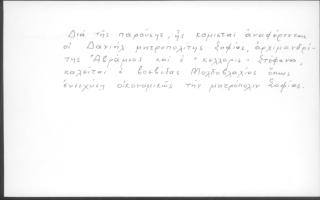 Διὰ τῆς παρούσης, ἧς κομισταὶ ἀναφέρονται
οἱ Δανιὴλ μητροπολίτης Σοφίας, ἀρχιμανδρί-
της Ἀβράμιος καὶ ὁ "κολλαρις" Στέφανο,
καλεῖται ὁ βοεβόδας Μολδοβλαχίας ὅπως
ἐνισχύσῃ οἰκονομικῶς τὴν μητρόπολιν Σοφίας.